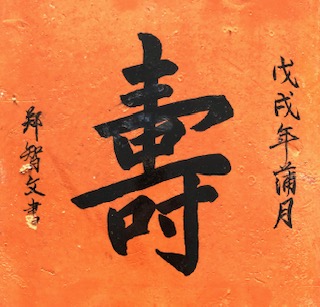 戊戌年蒲月
壽
郑智文書